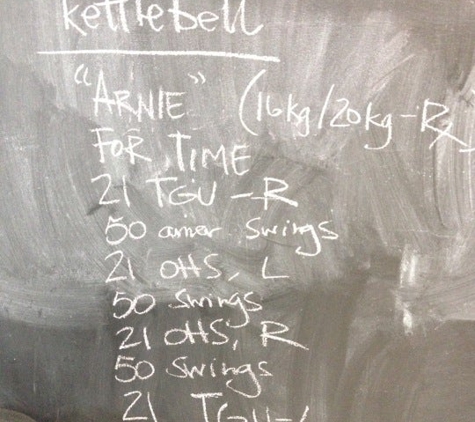 kettlebell
"ARNIE" (16kg/20kg-Rx)
FOR TIME
21 TGU - R
50 amer. Swings
21 OHS, L
50 Swings
21 OHS, R
50 Swings
21 TGU-L